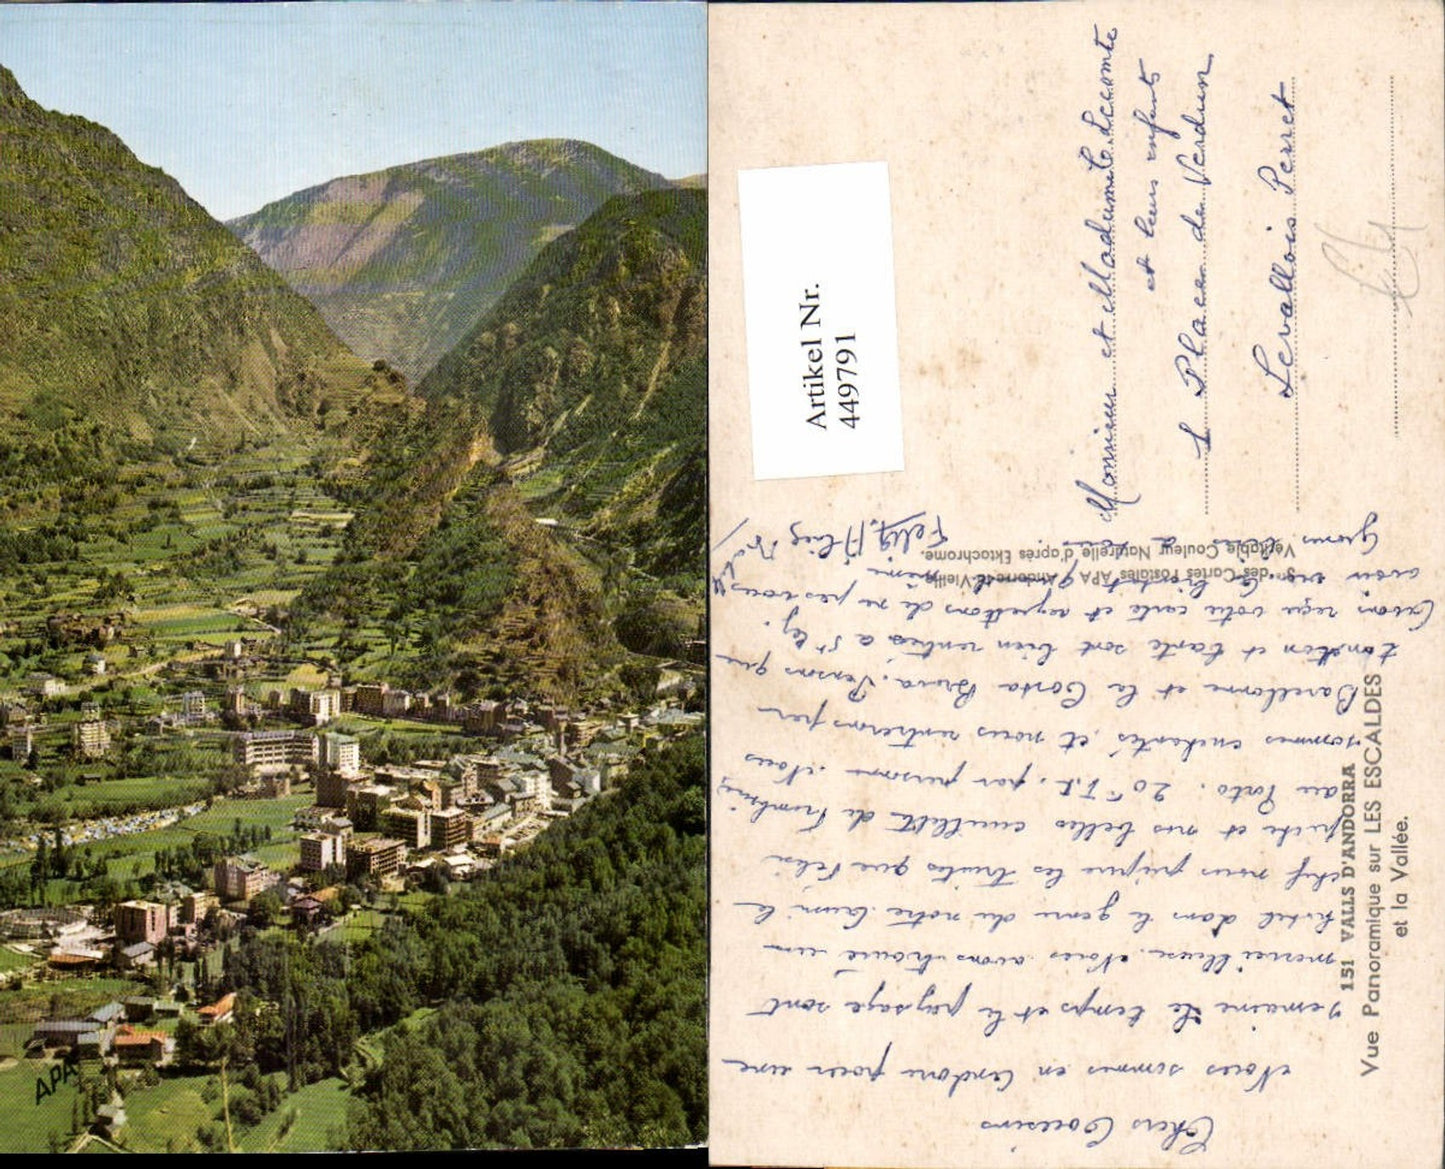 APA
Artikel Nr.
449791
Monsieur et Madame Lecomte
et leurs enfants
1 Place de Verdun
Levallois Perret
151 VALLS D'ANDORRA
Vue Panoramique sur LES ESCALDES
et la Vallée.
des Cartes Postales APA Andorre-la-Vieille
Véritable Couleur Naturelle d'après Ektochrome.
Chers Cousins
Nous sommes en Andorre pour une
semaine le temps et le paysage sont
merveilleux. Nous avons trouvé un
hôtel dans le genre du notre. Aussi le
chef nous prépare les truites que Félix
pêche et nos belles cueillett de
au Porto. 20 par personne. Nous
sommes enchantés et nous rentrerons par
Barcelone et la Costa Brava. Pensons que
tonton et tante sont bien rentrés à St
Avons reçu votre carte et regrettons de ne pas vous
avoir
Gros à tous.
Félix